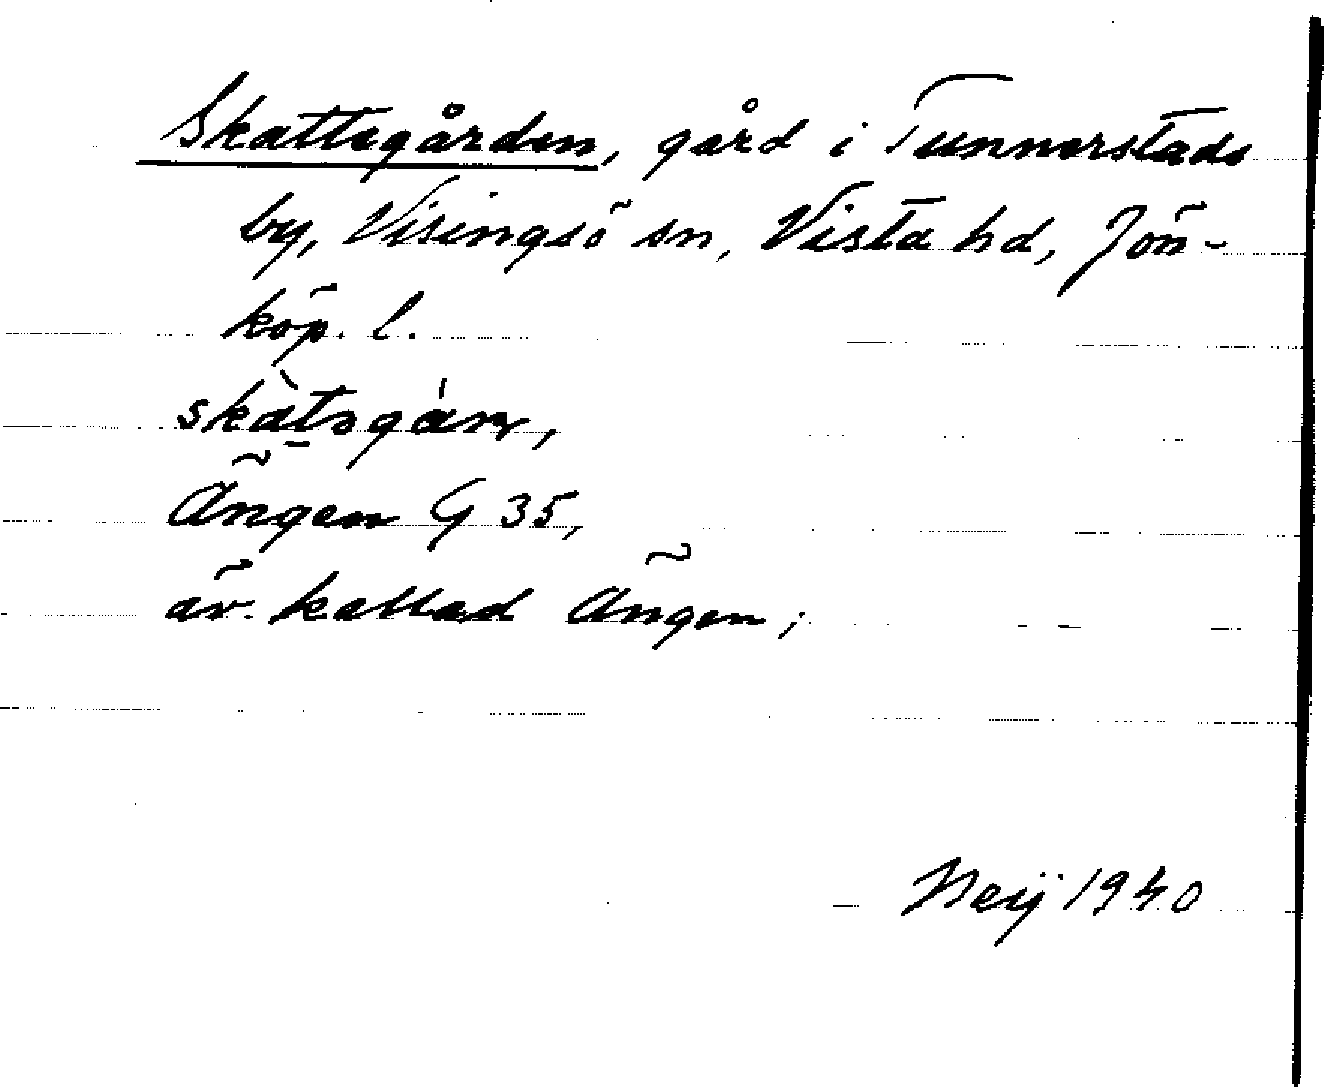 Skattegården, gård i Tunnerstads
by, Visingsö sn, Vista hd, Jön-
köp. l.
Ängen G 35,
äv. kallad Ängen,
Neij 1940